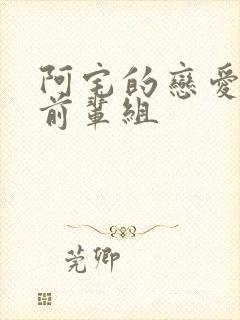 阿宅的戀愛
前輩組
莞卿